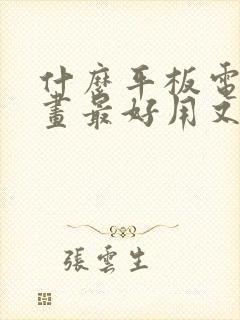 什麼平板電
畫最好用又
張雲生